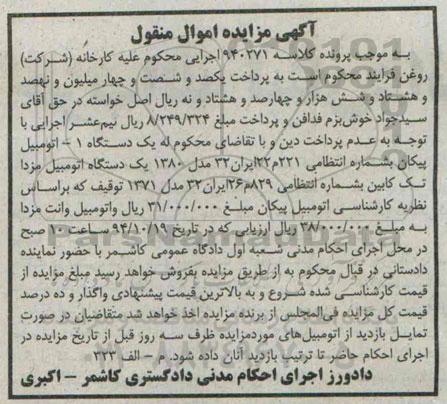 آگهی مزایده اموال منقول
به موجب پرونده کلاسه ۹۴۰۳۷۱اجرایی محکوم علیه کارخانه (شرکت)
روغن فرایند محکوم است به پرداخت یکصد و شصت و چهار میلیون و نهصد
و هشتاد و شش هزار و چهارصد و هشتاد و نه ریال اصل خواسته در حق آقای
سیدجواد خوش‌بزم فدافن و پرداخت مبلغ ۸/۲۴۹/۳۲۴ ریال نیم‌عشر اجرایی با
توجه به عدم پرداخت دین و با تقاضای محکوم له یک دستگاه ۱ - اتومبیل
پیکان بشماره انتظامی ۲۲۱م۲۲ایران۳۲ مدل ۱۳۸۰ یک دستگاه اتومبیل مزدا
تک کابین بشماره انتظامی ۸۲۹م۲۶ایران۳۲ مدل ۱۳۷۱ توقیف که براساس
نظریه کارشناسی اتومبیل پیکان مبلغ ۳۱/۰۰۰/۰۰۰ ریال واتومبیل وانت مزدا
به مبلغ ۳۸/۰۰۰/۰۰۰ ریال ارزیابی که در تاریخ ۹۴/۱۰/۱۹ ساعت ۱۰ صبح
در محل اجرای احکام مدنی شعبه اول دادگاه عمومی کاشمر با حضور نماینده
دادستانی در قبال محکوم به از طریق مزایده بفروش خواهد رسید مبلغ مزایده از
قیمت کارشناسی شده شروع و به بالاترین قیمت پیشنهادی واگذار و ده درصد
قیمت کل مزایده فی‌المجلس از برنده مزایده اخذ خواهد شد متقاضیان در صورت
تمایل بازدید از اتومبیل‌های موردمزایده ظرف سه روز قبل از تاریخ مزایده در
اجرای احکام حاضر تا ترتیب بازدید آنان داده شود. م - الف ۳۲۳
دادورز اجرای احکام مدنی دادگستری کاشمر - اکبری